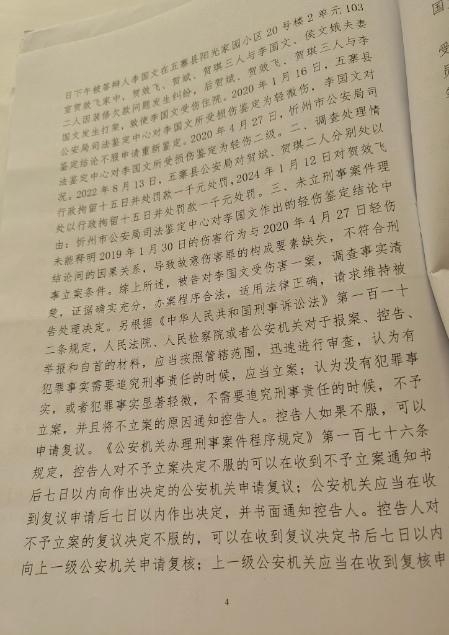 日下午被答辩人李国文在五寨县阳光家园小区20号楼2单元103
室贺效飞家中，贺效飞、贺斌、贺琪三人与李国文、侯文娥夫妻
二人因装修欠款问题发生纠纷，后贺斌、贺效飞、贺琪三人与李
国文发生打架，致使李国文受伤住院。2020年1月16日，五寨县
公安局司法鉴定中心对李国文所受损伤鉴定为轻微伤，李国文对
鉴定结论不服申请重新鉴定。2020年4月27日，忻州市公安局司
法鉴定中心对李国文所受损伤鉴定为轻伤二级。二、调查处理情
况。2022年8月13日，五寨县公安局对贺斌、贺琪二人分别处以
行政拘留十五日并处罚款一千元处罚，2024年1月12日对贺效飞
处以行政拘留十五日并处罚款一千元处罚。三、未立刑事案件理
由：忻州市公安局司法鉴定中心对李国文作出的轻伤鉴定结论中
未能释明2019年1月30日的伤害行为与2020年4月27日轻伤
结论间的因果关系，导致故意伤害罪的构成要素缺失，不符合刑
事立案条件。综上所述，被告对李国文受伤害一案，调查事实清
楚，证据确实充分，办案程序合法，适用法律正确，请求维持被
告处理决定。另根据《中华人民共和国刑事诉讼法》第一百一十
二条规定，人民法院、人民检察院或者公安机关对于报案、控告、
举报和自首的材料，应当按照管辖范围，迅速进行审查，认为有
犯罪事实需要追究刑事责任的时候，应当立案；认为没有犯罪事
实，或者犯罪事实显著轻微，不需要追究刑事责任的时候，不予
立案，并且将不立案的原因通知控告人。控告人如果不服，可以
申请复议。《公安机关办理刑事案件程序规定》第一百七十六条
规定，控告人对不予立案决定不服的可以在收到不予立案通知书
后七日以内向作出决定的公安机关申请复议；公安机关应当在收
到复议申请后七日以内作出决定，并书面通知控告人。控告人对
不予立案的复议决定不服的，可以在收到复议决定书后七日以内
向上一级公安机关申请复核；上一级公安机关应当在收到复核申
4
国
受